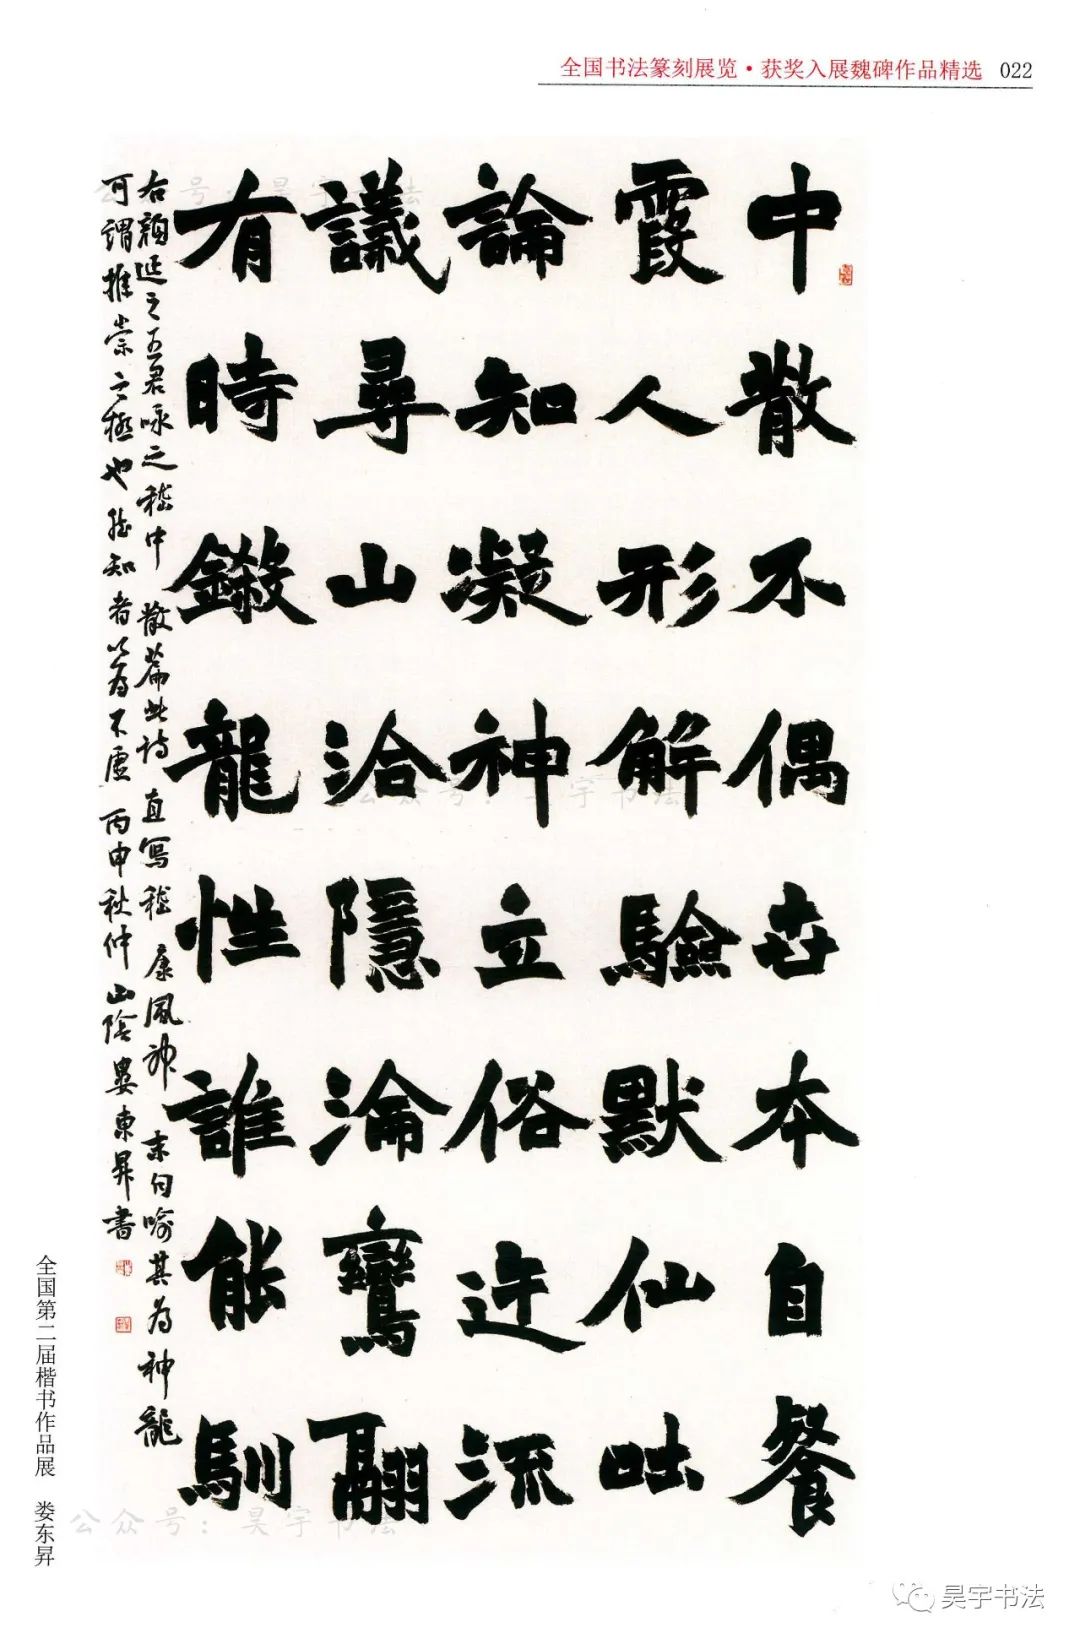 全国书法篆刻展览·获奖入展魏碑作品精选 022
中散不偶世本自餐
霞人形解驗默仙吐
論知凝神立俗迕流
議尋山洽隱淪鸞翮
有時鎩龍性誰能馴
右顏延之五君咏之嵇中散篇此詩直寫嵇康風神末句喻其为神龍
可謂推崇之極也 知者以为不虛丙申秋仲山陰婁東昇書
全国第二届楷书作品展 娄东昇
公众号：昊宇书法
公众号：昊宇书法
公众号：昊宇书法
昊宇书法